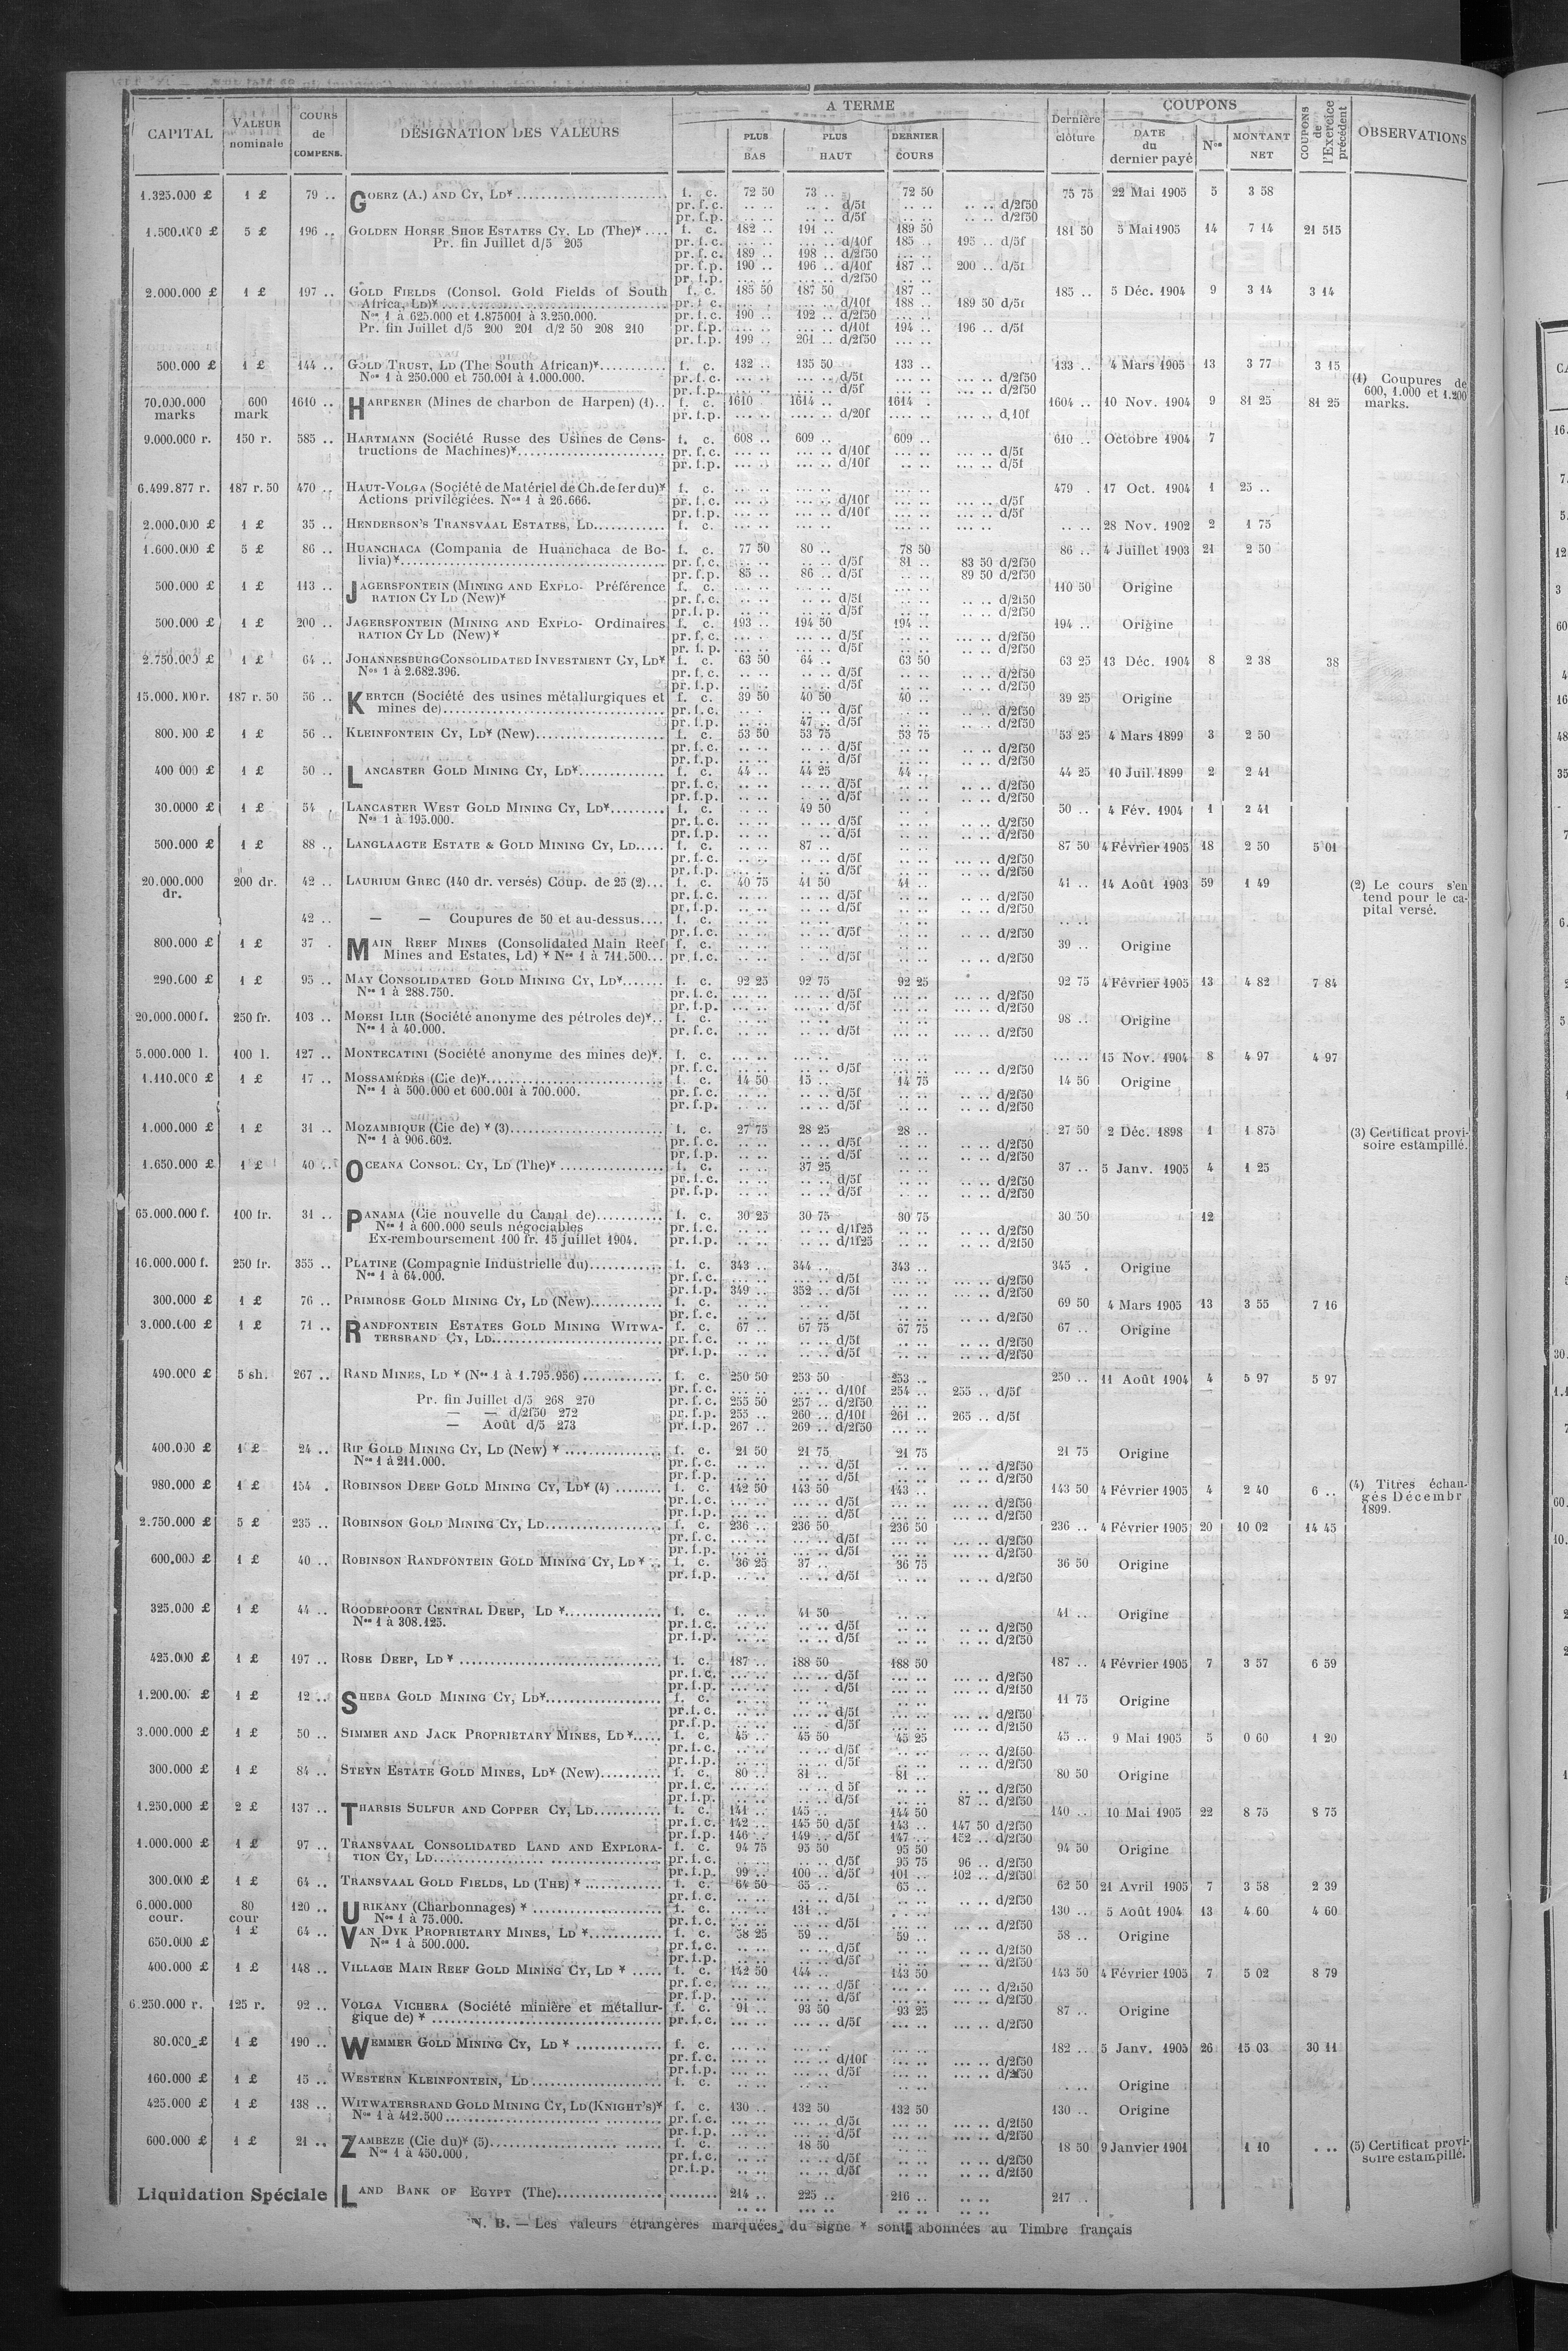 CAPITAL | VALEUR nominale | COURS de COMPENS. | DÉSIGNATION DES VALEURS | A TERME | PLUS BAS | PLUS HAUT | DERNIER COURS | Dernière clôture | COUPONS | DATE du dernier payé | Nos | MONTANT NET | COUPONS de l'Exercice précédent | OBSERVATIONS
1.325.000 £ 1 £ 79 .. GOERZ (A.) AND CY, LD* f. c. 72 50 73 .. 72 50 75 75 22 Mai 1905 5 3 58
pr. f. c. .. .. .. . d/5f .. .. .. .. d/2f50
pr. f. p. .. .. .. .. d/5f .. .. .. .. d/2f50
1.500.000 £ 5 £ 196 .. GOLDEN HORSE SHOE ESTATES CY, LD (The)* f. c. 182 .. 191 .. 189 50 181 50 5 Mai 1905 14 7 14 21 515
Pr. fin Juillet d/5 205 pr. f. c. ... .. ... .. d/10f 185 .. 195 .. d/5f
pr. f. c. 189 .. 198 .. d/2f50 ... ..
pr. f. p. 190 .. 196 .. d/10f 187 .. 200 .. d/5f
pr. f. p. ... .. ... .. d/2f50
2.000.000 £ 1 £ 197 .. GOLD FIELDS (Consol. Gold Fields of South f. c. 185 50 187 50 187 .. 185 .. 5 Déc. 1904 9 3 14 3 14
Africa, Ld)* pr. f. c. ... .. ... .. d/10f 188 .. 189 50 d/5f
Nos 1 à 625.000 et 1.875001 à 3.250.000. pr. f. c. 190 .. 192 .. d/2f50 ... ..
Pr. fin Juillet d/5 200 201 d/2 50 208 210 pr. f. p. ... .. ... .. d/10f 194 .. 196 .. d/5f
pr. f. p. 199 .. 201 .. d/2f50 ... ..
500.000 £ 1 £ 144 .. GOLD TRUST, LD (The South African)* f. c. 132 .. 135 50 133 .. 133 .. 4 Mars 1905 13 3 77 3 15
Nos 1 à 250.000 et 750.001 à 1.000.000. pr. f. c. ... .. ... .. d/5f ... .. ... .. d/2f50
pr. f. p. ... .. ... .. d/5f ... .. ... .. d/2f50
70.000.000 marks 600 mark 1610 .. HARPENER (Mines de charbon de Harpen) (1).. f. c. 1610 1614 .. 1614 .. 1604 .. 10 Nov. 1904 9 81 25 81 25 (1) Coupures de 600, 1.000 et 1.200 marks.
pr. f. p. .... .. .... .. d/20f .... .. .... .. d/10f
9.000.000 r. 150 r. 585 .. HARTMANN (Société Russe des Usines de Cons- f. c. 608 .. 609 .. 609 .. 610 .. Octobre 1904 7
tructions de Machines)* pr. f. c. ... .. ... .. d/10f ... .. ... .. d/5f
pr. f. p. ... .. ... .. d/10f .. .. ... .. d/5f
6.499.877 r. 187 r. 50 470 .. HAUT-VOLGA (Société de Matériel de Ch. de fer du)* f. c. ... .. ... .. ... .. 479 . 17 Oct. 1904 1 25 ..
Actions privilégiées. Nos 1 à 26.666. pr. f. c. ... .. ... .. d/10f ... .. ... .. d/5f
pr. f. p. ... .. ... .. d/10f ... .. ... .. d/5f
2.000.000 £ 1 £ 35 .. HENDERSON'S TRANSVAAL ESTATES, LD f. c. ... .. ... .. ... .. .. .. 28 Nov. 1902 2 1 75
1.600.000 £ 5 £ 86 .. HUANCHACA (Compania de Huanchaca de Bo- f. c. 77 50 80 .. 78 50 86 .. 4 Juillet 1903 21 2 50
livia)* pr. f. c. .. .. .. .. d/5f 81 .. 83 50 d/2f50
pr. f. p. 85 .. 86 .. d/5f .. .. 89 50 d/2f50
500.000 £ 1 £ 113 .. JAGERSFONTEIN (MINING AND EXPLO- Préférence f. c. ... .. ... .. ... .. 110 50 Origine
RATION CY LD (New)* pr. f. c. .. .. .. .. d/5f .. .. .. .. d/2f50
pr. f. p. .. .. .. .. d/5f .. .. .. .. d/2f50
500.000 £ 1 £ 200 .. JAGERSFONTEIN (MINING AND EXPLO- Ordinaires f. c. 193 .. 194 50 194 .. 194 .. Origine
RATION CY LD (New)* pr. f. c. ... .. ... .. d/5f .. .. ... .. d/2f50
pr. f. p. ... .. ... .. d/5f .. .. ... .. d/2f50
2.750.000 £ 1 £ 64 .. JOHANNESBURG CONSOLIDATED INVESTMENT CY, LD* f. c. 63 50 64 .. 63 50 63 25 13 Déc. 1904 8 2 38 38
Nos 1 à 2.682.396. pr. f. c. .. .. .. .. d/5f .. .. .. .. d/2f50
pr. f. p. .. .. .. .. d/5f .. .. .. .. d/2f50
15.000.000 r. 187 r. 50 56 .. KERTCH (Société des usines métallurgiques et f. c. 39 50 40 50 40 .. 39 25 Origine
mines de) pr. f. c. .. .. .. .. d/5f .. .. .. .. d/2f50
pr. f. p. .. .. 47 .. d/5f .. .. .. .. d/2f50
800.000 £ 1 £ 56 .. KLEINFONTEIN CY, LD* (New) f. c. 53 50 53 75 53 75 53 25 4 Mars 1899 3 2 50
pr. f. c. .. .. .. .. d/5f .. .. .. .. d/2f50
pr. f. p. .. .. .. .. d/5f .. .. .. .. d/2f50
400 000 £ 1 £ 50 .. LANCASTER GOLD MINING CY, LD* f. c. 44 .. 44 25 44 .. 44 25 10 Juil. 1899 2 2 41
pr. f. c. .. .. .. .. d/5f .. .. .. .. d/2f50
pr. f. p. .. .. .. .. d/5f .. .. .. .. d/2f50
30.0000 £ 1 £ 54 . LANCASTER WEST GOLD MINING CY, LD* f. c. .. .. 49 50 .. . 50 .. 4 Fév. 1904 1 2 41
Nos 1 à 195.000. pr. f. c. .. .. .. .. d/5f .. .. .. .. d/2f50
pr. f. p. .. .. .. .. d/5f .. .. .. .. d/2f50
500.000 £ 1 £ 88 .. LANGLAAGTE ESTATE & GOLD MINING CY, LD f. c. .. .. 87 .. .. .. 87 50 4 Février 1905 18 2 50 5 01
pr. f. c. .. .. .. .. d/5f .. .. ... .. d/2f50
pr. f. p. ... .. .. .. d/5f .. .. ... .. d/2f50
20.000.000 dr. 200 dr. 42 .. LAURIUM GREC (140 dr. versés) Coup. de 25 (2) f. c. 40 75 41 50 41 .. 41 .. 14 Août 1903 59 1 49 (2) Le cours s'en tend pour le ca- pital versé.
pr. f. c. .. .. .. .. d/5f .. .. .. .. d/2f50
pr. f. p. .. .. .. .. d/5f .. .. .. .. d/2f50
42 .. — — Coupures de 50 et au-dessus f. c. .. .. .. .. .. .. .. ..
pr. f. c. .. .. .. .. d/5f .. .. .. .. d/2f50
800.000 £ 1 £ 37 . MAIN REEF MINES (Consolidated Main Reef f. c. .. .. .. .. .. .. 39 .. Origine
Mines and Estates, Ld) * Nos 1 à 711.500 pr. f. c. .. .. .. .. d/5f .. .. .. .. d/2f50
290.000 £ 1 £ 95 .. MAY CONSOLIDATED GOLD MINING CY, LD* f. c. 92 25 92 75 92 25 92 75 4 Février 1905 13 4 82 7 84
Nos 1 à 288.750. pr. f. c. ... .. ... .. d/5f ... .. ... .. d/2f50
pr. f. p. ... .. ... .. d/5f ... .. ... .. d/2f50
20.000.000 f. 250 fr. 103 .. MOESI ILIR (Société anonyme des pétroles de)* f. c. ... .. ... .. ... .. 98 .. Origine
Nos 1 à 40.000. pr. f. c. ... .. ... .. d/5f ... .. ... .. d/2f50
5.000.000 l. 100 l. 127 .. MONTECATINI (Société anonyme des mines de)*. f. c. ... .. ... .. ... .. ... .. 15 Nov. 1904 8 4 97 4 97
pr. f. c. ... .. ... .. d/5f ... .. ... .. d/2f50
1.110.000 £ 1 £ 17 .. MOSSAMÉDÈS (Cie de)* f. c. 14 50 15 .. 14 75 14 50 Origine
Nos 1 à 500.000 et 600.001 à 700.000. pr. f. c. .. .. .. .. d/5f .. .. .. .. d/2f50
pr. f. p. .. .. .. .. d/5f .. .. .. .. d/2f50
1.000.000 £ 1 £ 31 .. MOZAMBIQUE (Cie de) * (3) f. c. 27 75 28 25 28 .. 27 50 2 Déc. 1898 1 1 875 (3) Certificat provi- soire estampillé.
Nos 1 à 906.602. pr. f. c. .. .. .. .. d/5f .. .. .. .. d/2f50
pr. f. p. .. .. .. .. d/5f .. .. .. .. d/2f50
1.650.000 £ 1 £ 40 .. OCEANA CONSOL. CY, LD (The)* f. c. .. .. 37 25 .. .. 37 .. 5 Janv. 1905 4 1 25
pr. f. c. .. .. .. .. d/5f .. .. .. .. d/2f50
pr. f. p. .. .. .. .. d/5f .. .. .. .. d/2f50
65.000.000 f. 100 fr. 31 .. PANAMA (Cie nouvelle du Canal de) f. c. 30 25 30 75 30 75 30 50 12
Nos 1 à 600.000 seuls négociables pr. f. c. .. .. .. .. d/1f25 .. .. .. .. d/2f50
Ex-remboursement 100 fr. 15 juillet 1904. pr. f. p. .. .. .. .. d/1f25 .. .. .. .. d/2f50
16.000.000 f. 250 fr. 355 .. PLATINE (Compagnie Industrielle du) f. c. 343 .. 344 .. 343 .. 345 . Origine
Nos 1 à 64.000. pr. f. c. ... .. ... .. d/5f ... .. ... .. d/2f50
pr. f. p. 349 .. 352 .. d/5f ... .. ... .. d/2f50
300.000 £ 1 £ 76 .. PRIMROSE GOLD MINING CY, LD (New) f. c. .. .. .. .. .. .. 69 50 4 Mars 1905 13 3 55 7 16
pr. f. c. .. .. .. .. d/5f .. .. .. .. d/2f50
3.000.000 £ 1 £ 71 .. RANDFONTEIN ESTATES GOLD MINING WITWA- f. c. 67 .. 67 75 67 75 67 .. Origine
TERSRAND CY, LD pr. f. c. .. .. .. .. d/5f .. .. .. .. d/2f50
pr. f. p. .. .. .. .. d/5f .. .. .. .. d/2f50
490.000 £ 5 sh. 267 .. RAND MINES, LD * (Nos 1 à 1.795.956) f. c. 250 50 253 50 253 .. 250 .. 11 Août 1904 4 5 97 5 97
pr. f. c. ... .. ... .. d/10f 254 .. 255 .. d/5f
Pr. fin Juillet d/5 268 270 pr. f. c. 255 50 257 .. d/2f50 ... ..
— — d/2f50 272 pr. f. p. 255 .. 260 .. d/10f 261 .. 265 .. d/5f
— Août d/5 273 pr. f. p. 267 .. 269 .. d/2f50 ... ..
400.000 £ 1 £ 24 .. RIP GOLD MINING CY, LD (New) * f. c. 21 50 21 75 21 75 21 75 Origine
Nos 1 à 211.000. pr. f. c. .. .. .. .. d/5f .. .. .. .. d/2f50
pr. f. p. .. .. .. .. d/5f .. .. .. .. d/2f50
980.000 £ 1 £ 154 . ROBINSON DEEP GOLD MINING CY, LD* (4) f. c. 142 50 143 50 143 .. 143 50 4 Février 1905 4 2 40 6 .. (4) Titres échan- gés Décembr 1899.
pr. f. c. ... .. ... .. d/5f ... .. ... .. d/2f50
pr. f. p. ... .. ... .. d/5f ... .. ... .. d/2f50
2.750.000 £ 5 £ 235 .. ROBINSON GOLD MINING CY, LD f. c. 236 .. 236 50 236 50 236 .. 4 Février 1905 20 10 02 14 45
pr. f. c. ... .. ... .. d/5f ... .. ... .. d/2f50
pr. f. p. ... .. ... .. d/5f ... .. ... .. d/2f50
600.000 £ 1 £ 40 .. ROBINSON RANDFONTEIN GOLD MINING CY, LD * f. c. 36 25 37 .. 36 75 36 50 Origine
pr. f. p. .. .. .. .. d/5f .. .. .. .. d/2f50
325.000 £ 1 £ 44 .. ROODEPOORT CENTRAL DEEP, LD * f. c. .. .. 41 50 .. .. 41 .. Origine
Nos 1 à 308.125. pr. f. c. .. .. .. .. d/5f .. .. .. .. d/2f50
pr. f. p. .. .. .. .. d/5f .. .. .. .. d/2f50
425.000 £ 1 £ 197 .. ROSE DEEP, LD * f. c. 187 .. 188 50 188 50 187 .. 4 Février 1905 7 3 57 6 59
pr. f. c. ... .. ... .. d/5f ... .. ... .. d/2f50
pr. f. p. ... .. ... .. d/5f ... .. ... .. d/2f50
1.200.00. £ 1 £ 12 .. SHEBA GOLD MINING CY, LD* f. c. .. .. .. .. .. .. 11 75 Origine
pr. f. c. .. .. .. .. d/5f .. .. ... .. d/2f50
pr. f. p. .. .. .. .. d/5f .. .. ... .. d/2f50
3.000.000 £ 1 £ 50 .. SIMMER AND JACK PROPRIETARY MINES, LD * f. c. 45 .. 45 50 45 25 45 .. 9 Mai 1905 5 0 60 1 20
pr. f. c. .. .. .. .. d/5f .. .. .. .. d/2f50
pr. f. p. .. .. .. .. d/5f .. .. .. .. d/2f50
300.000 £ 1 £ 84 .. STEYN ESTATE GOLD MINES, LD* (New) f. c. 80 .. 81 .. 81 .. 80 50 Origine
pr. f. c. .. .. .. .. d 5f .. .. .. .. d/2f50
pr. f. p. .. .. .. .. d/5f .. .. 87 .. d/2f50
1.250.000 £ 2 £ 137 .. THARSIS SULFUR AND COPPER CY, LD f. c. 141 .. 145 .. 144 50 140 .. 10 Mai 1905 22 8 75 8 75
pr. f. c. 142 .. 145 50 d/5f 143 .. 147 50 d/2f50
pr. f. p. 146 .. 149 .. d/5f 147 .. 152 .. d/2f50
1.000.000 £ 1 £ 97 .. TRANSVAAL CONSOLIDATED LAND AND EXPLORA- f. c. 94 75 95 50 95 50 94 50 Origine
TION CY, LD pr. f. c. .. .. ... .. d/5f 95 75 96 .. d/2f50
pr. f. p. 99 .. 100 .. d/5f 101 .. 102 .. d/2f50
300.000 £ 1 £ 64 .. TRANSVAAL GOLD FIELDS, LD (THE) * f. c. 64 50 65 .. 65 .. 62 50 21 Avril 1905 7 3 58 2 39
pr. f. c. .. .. .. .. d/5f .. .. .. .. d/2f50
6.000.000 cour. 80 cour 120 .. URIKANY (Charbonnages) * f. c. ... .. 131 .. . . .. 130 .. 5 Août 1904 13 4 60 4 60
Nos 1 à 75.000. pr. f. c. ... .. ... .. d/5f ... .. ... .. d/2f50
650.000 £ 1 £ 64 .. VAN DYK PROPRIETARY MINES, LD * f. c. 58 25 59 .. 59 .. 58 .. Origine
Nos 1 à 500.000. pr. f. c. .. .. .. .. d/5f .. .. .. .. d/2f50
pr. f. p. .. .. .. .. d/5f .. .. .. .. d/2f50
400.000 £ 1 £ 148 .. VILLAGE MAIN REEF GOLD MINING CY, LD * f. c. 142 50 144 .. 143 50 143 50 4 Février 1905 7 5 02 8 79
pr. f. c. ... .. ... .. d/5f ... .. ... .. d/2f50
pr. f. p. ... .. ... .. d/5f ... .. ... .. d/2f50
6.250.000 r. 125 r. 92 .. VOLGA VICHERA (Société minière et métallur- f. c. 91 .. 93 50 93 25 87 .. Origine
gique de) * pr. f. c. ... .. ... .. d/5f ... .. ... .. d/2f50
80.000 £ 1 £ 190 .. WEMMER GOLD MINING CY, LD * f. c. ... .. ... .. ... .. 182 .. 5 Janv. 1905 26 15 03 30 11
pr. f. c. ... .. ... .. d/10f ... .. ... .. d/2f50
pr. f. p. ... .. ... .. d/5f ... .. ... .. d/2f50
160.000 £ 1 £ 15 .. WESTERN KLEINFONTEIN, LD f. c. .. .. .. .. .. .. . ... Origine
425.000 £ 1 £ 138 .. WITWATERSRAND GOLD MINING CY, LD (KNIGHT'S)* f. c. 130 .. 132 50 132 50 130 .. Origine
Nos 1 à 412.500 pr. f. c. ... .. ... .. d/5f ... .. ... .. d/2f50
pr. f. p. ... .. ... .. d/5f ... .. ... .. d/2f50
600.000 £ 1 £ 21 .. ZAMBÈZE (Cie du)* (5) f. c. .. .. 18 50 .. .. 18 50 9 Janvier 1901 1 10 . .. (5) Certificat provi- soire estampillé.
Nos 1 à 450.000. pr. f. c. .. .. .. .. d/5f .. .. .. .. d/2f50
pr. f. p. .. .. .. .. d/5f .. .. .. .. d/2f50
Liquidation Spéciale LAND BANK OF EGYPT (The) 214 .. 225 .. 216 .. .. .. 217 ..
N. B. — Les valeurs étrangères marquées du signe * sont abonnées au Timbre français